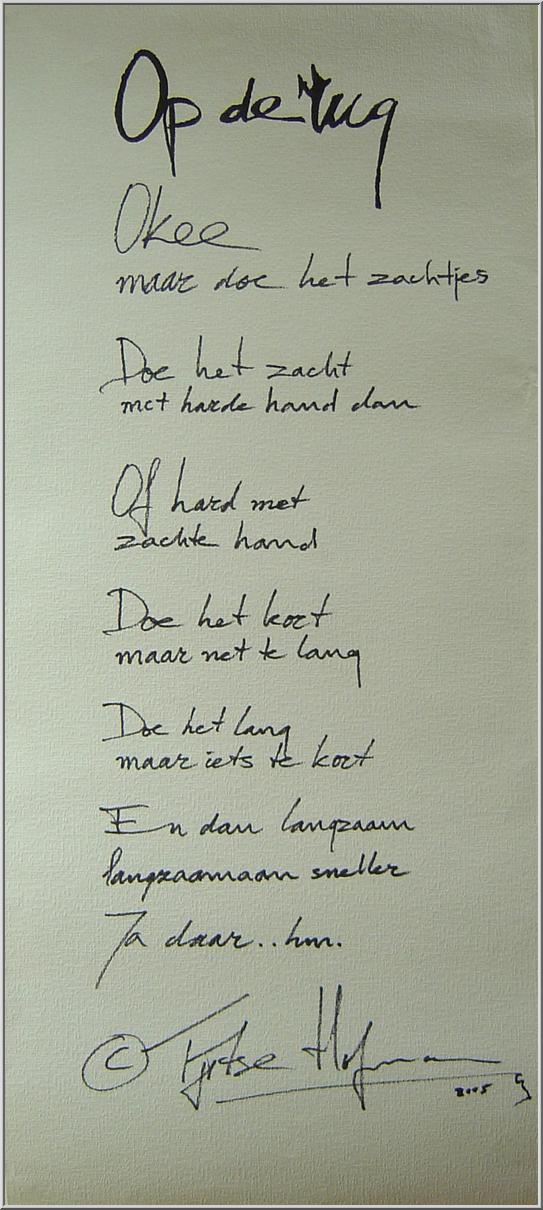 Op de rug
Okee
maar doe het zachtjes
Doe het zacht
met harde hand dan
Of hard met
zachte hand
Doe het kort
maar net te lang
Doe het lang
maar iets te kort
En dan langzaam
langzaamaan sneller
Ja daar.. hm.
© Tjitse Hofman
2005